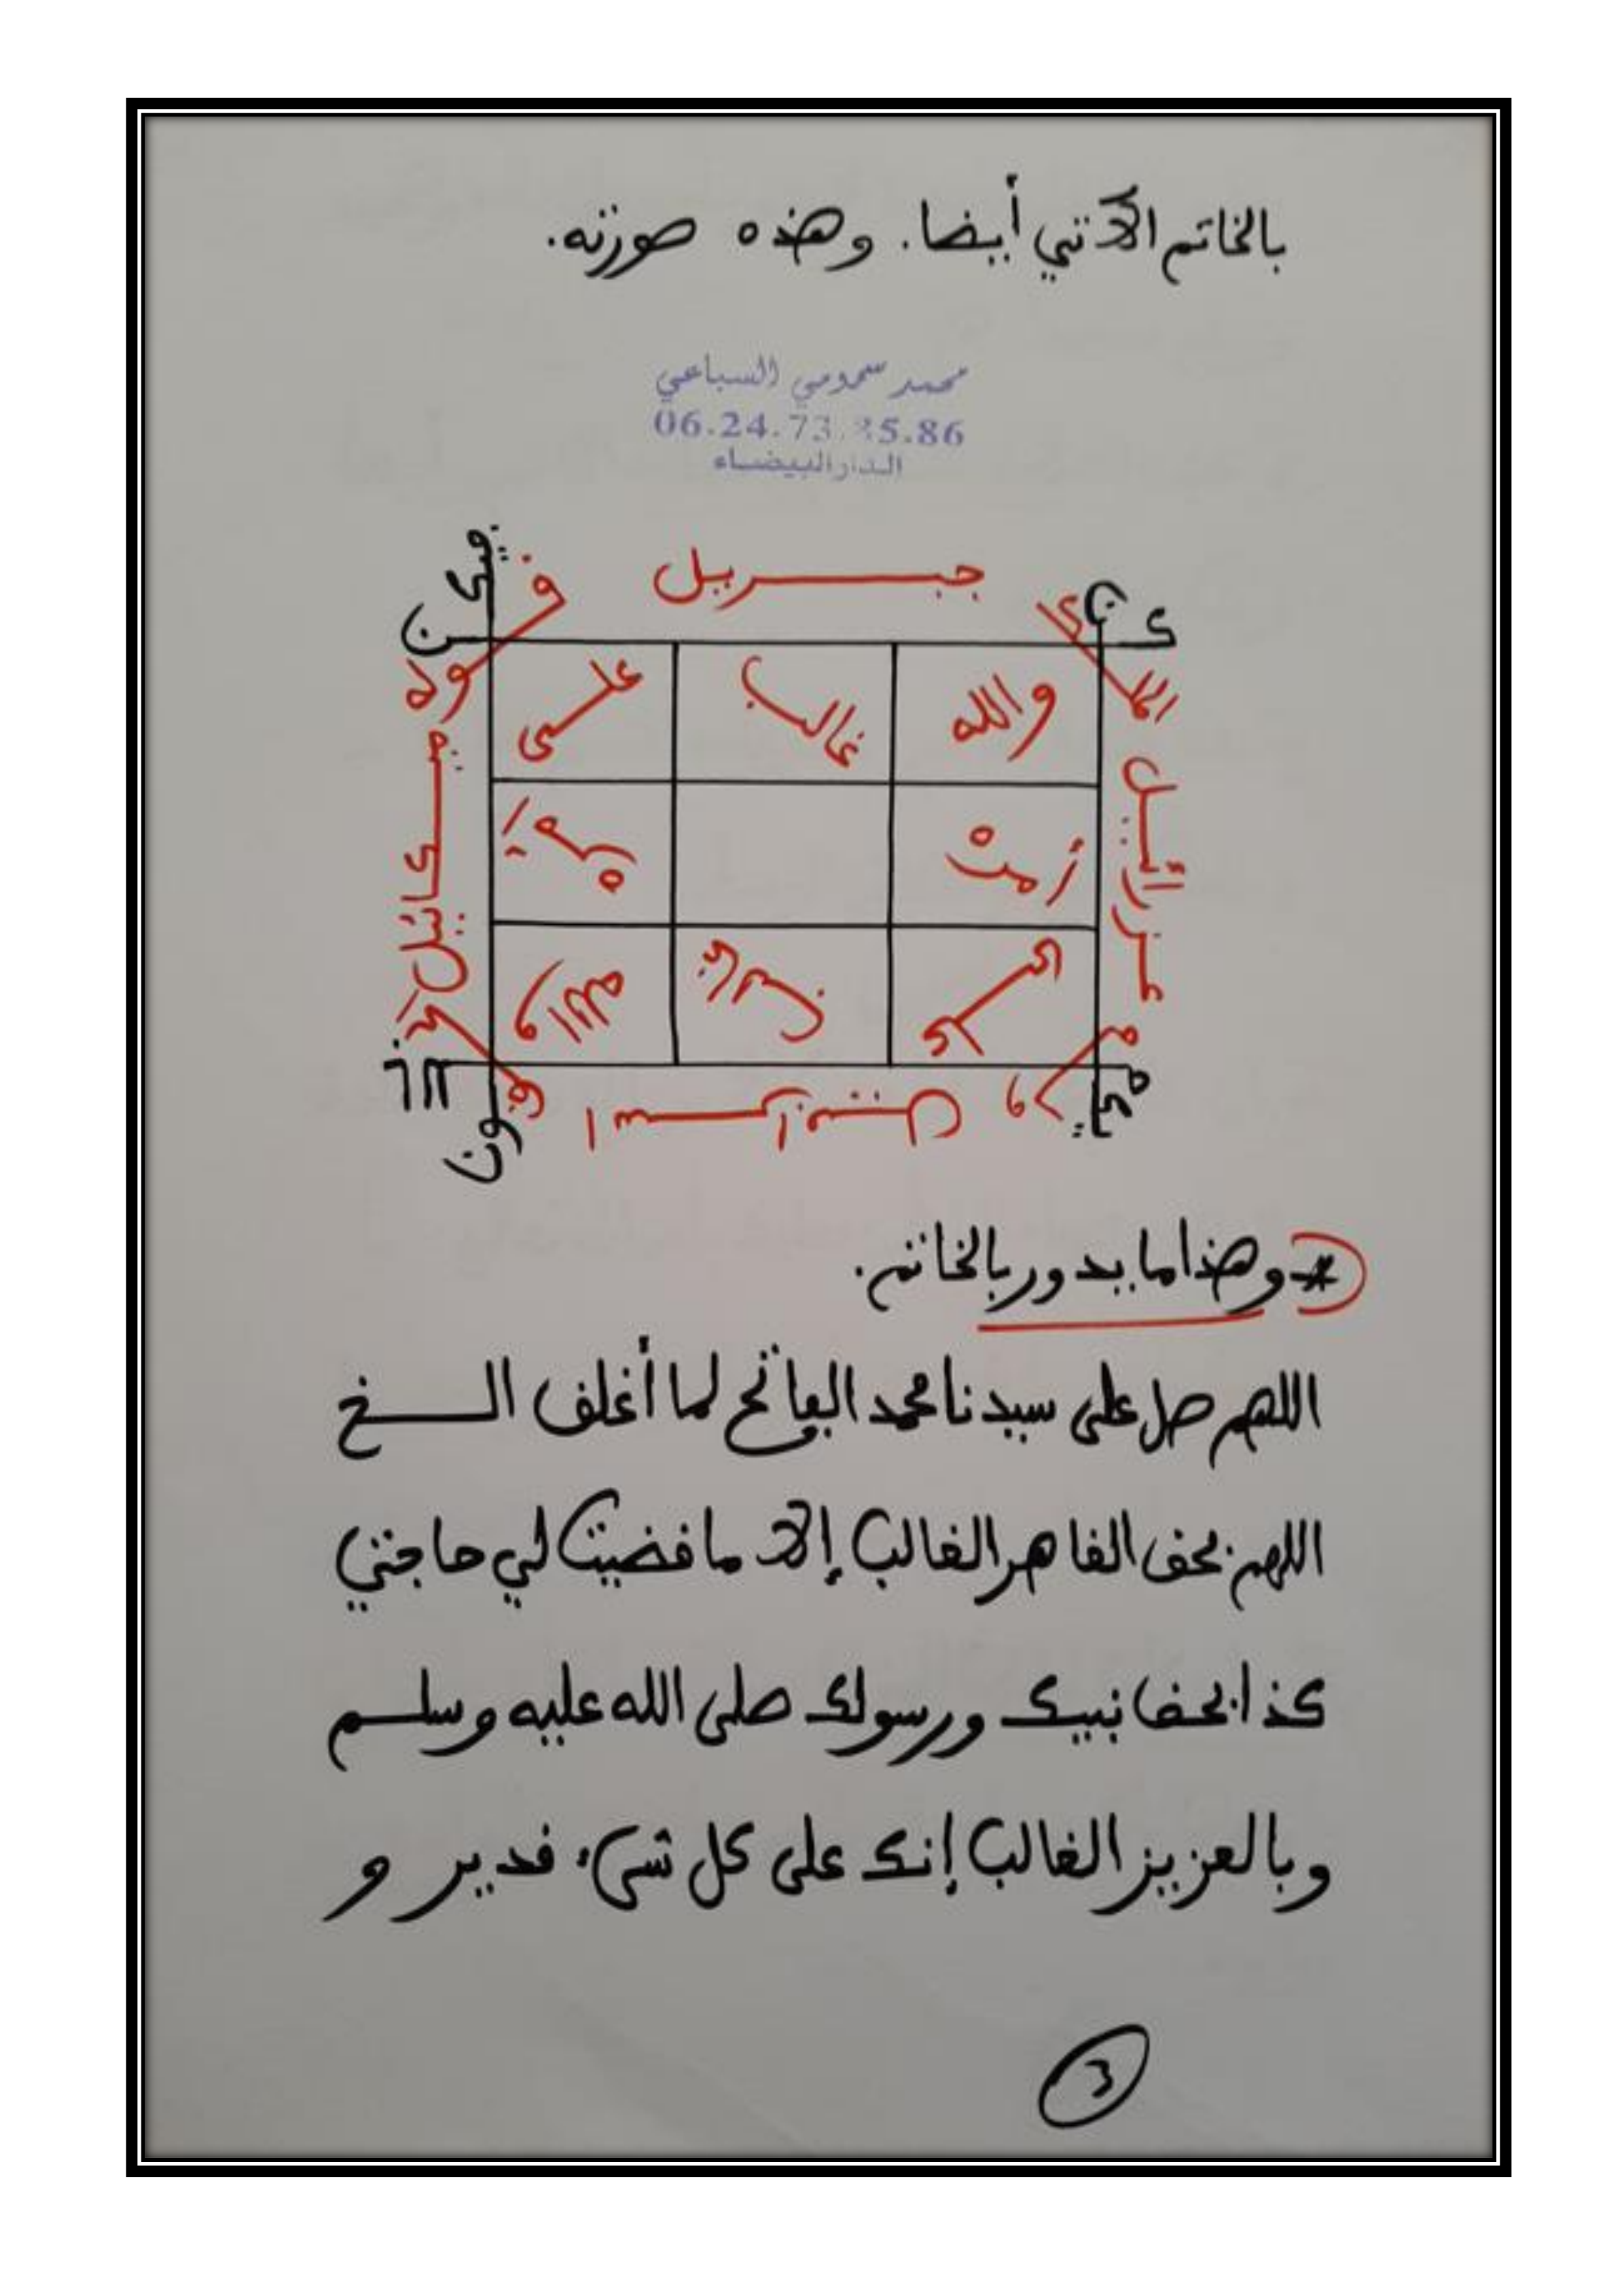 بالخاتم الآتي أيضا. وهذه صورته.
محمد سمومي السباعي
06.24.73.35.86
الدار البيضاء
جبريل
والله غالب على
أمره
عزرائيل
ميكائيل
قوله
الملك
كن
فيكون
*وهذا ما يدور بالخاتم.
اللهم صل على سيدنا محمد الفاتح لما أغلق الخ
اللهم بحق القاهر الغالب إلا ما قضيت لي حاجتي
كذا بحق نبيك ورسولك صلى الله عليه وسلم
وبالعزيز الغالب إنك على كل شيء قدير و
3